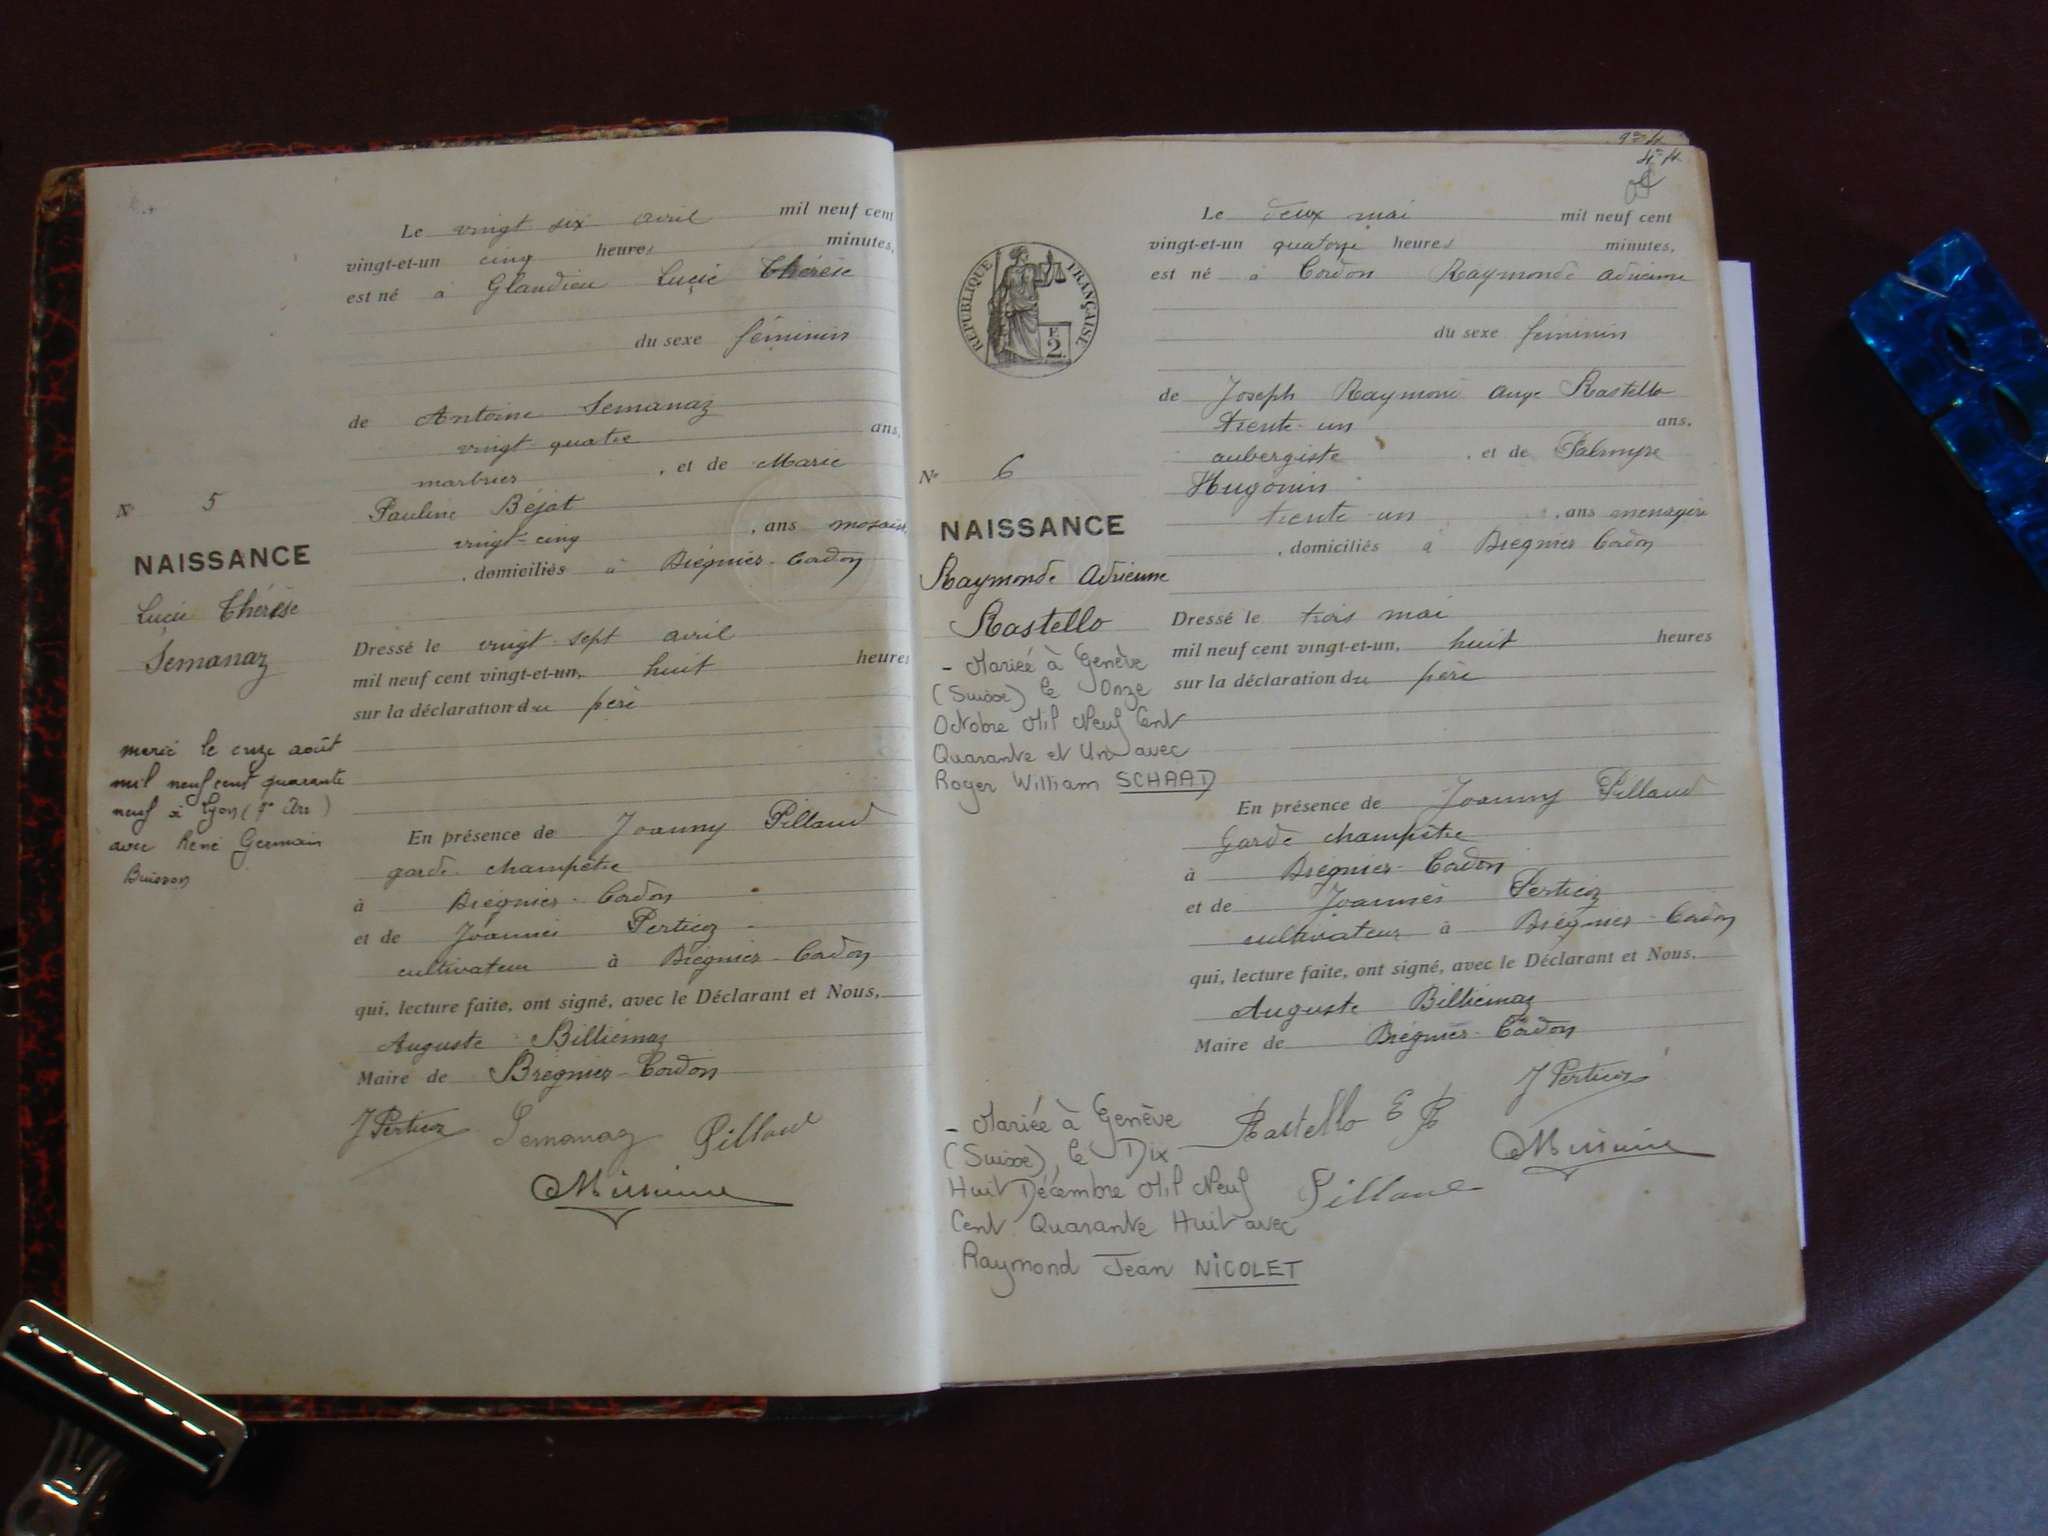 Le vingt six avril mil neuf cent
vingt-et-un cinq heures minutes,
est né à Glandieu Lucie Thérèse
du sexe féminin
de Antoine Semanaz
vingt quatre ans,
marbrier, et de Marie
Pauline Béjat
vingt-cinq, ans
, domiciliés à Brégnier-Cordon
N° 5
NAISSANCE
Lucie Thérèse
Semanaz
Dressé le vingt-sept avril
mil neuf cent vingt-et-un, huit heures
sur la déclaration du père
marié le onze août
mil neuf cent quarante
neuf à Lyon ( Arr)
avec René Germain
Buisson
En présence de Joanny Pillaud
garde champêtre
à Brégnier-Cordon
et de Joannès Perticoz
cultivateur à Brégnier-Cordon
qui, lecture faite, ont signé, avec le Déclarant et Nous,
Auguste Billiémaz
Maire de Brégnier-Cordon
J Perticoz Semanaz Pillaud
Le deux mai mil neuf cent
vingt-et-un quatorze heures minutes,
est né à Cordon Raymonde Adrienne
RÉPUBLIQUE FRANÇAISE
F.
2
du sexe féminin
de Joseph Raymond Ange Rastello
trente-un ans,
aubergiste, et de Palmyre
Hugonin
trente-un, ans ménagère
, domiciliés à Brégnier Cordon
N° 6
NAISSANCE
Raymonde Adrienne
Rastello
Dressé le trois mai
mil neuf cent vingt-et-un, huit heures
sur la déclaration du père
- Mariée à Genève
(Suisse) le Onze
Octobre Mil Neuf Cent
Quarante et Un avec
Roger William SCHAAD
En présence de Joanny Pillaud
garde champêtre
à Brégnier-Cordon
et de Joannès Perticoz
cultivateur à Brégnier-Cordon
qui, lecture faite, ont signé, avec le Déclarant et Nous,
Auguste Billiémaz
Maire de Brégnier-Cordon
J Perticoz
Rastello
Pillaud
- Mariée à Genève
(Suisse), le Dix
Huit Décembre Mil Neuf
Cent Quarante Huit avec
Raymond Jean NICOLET